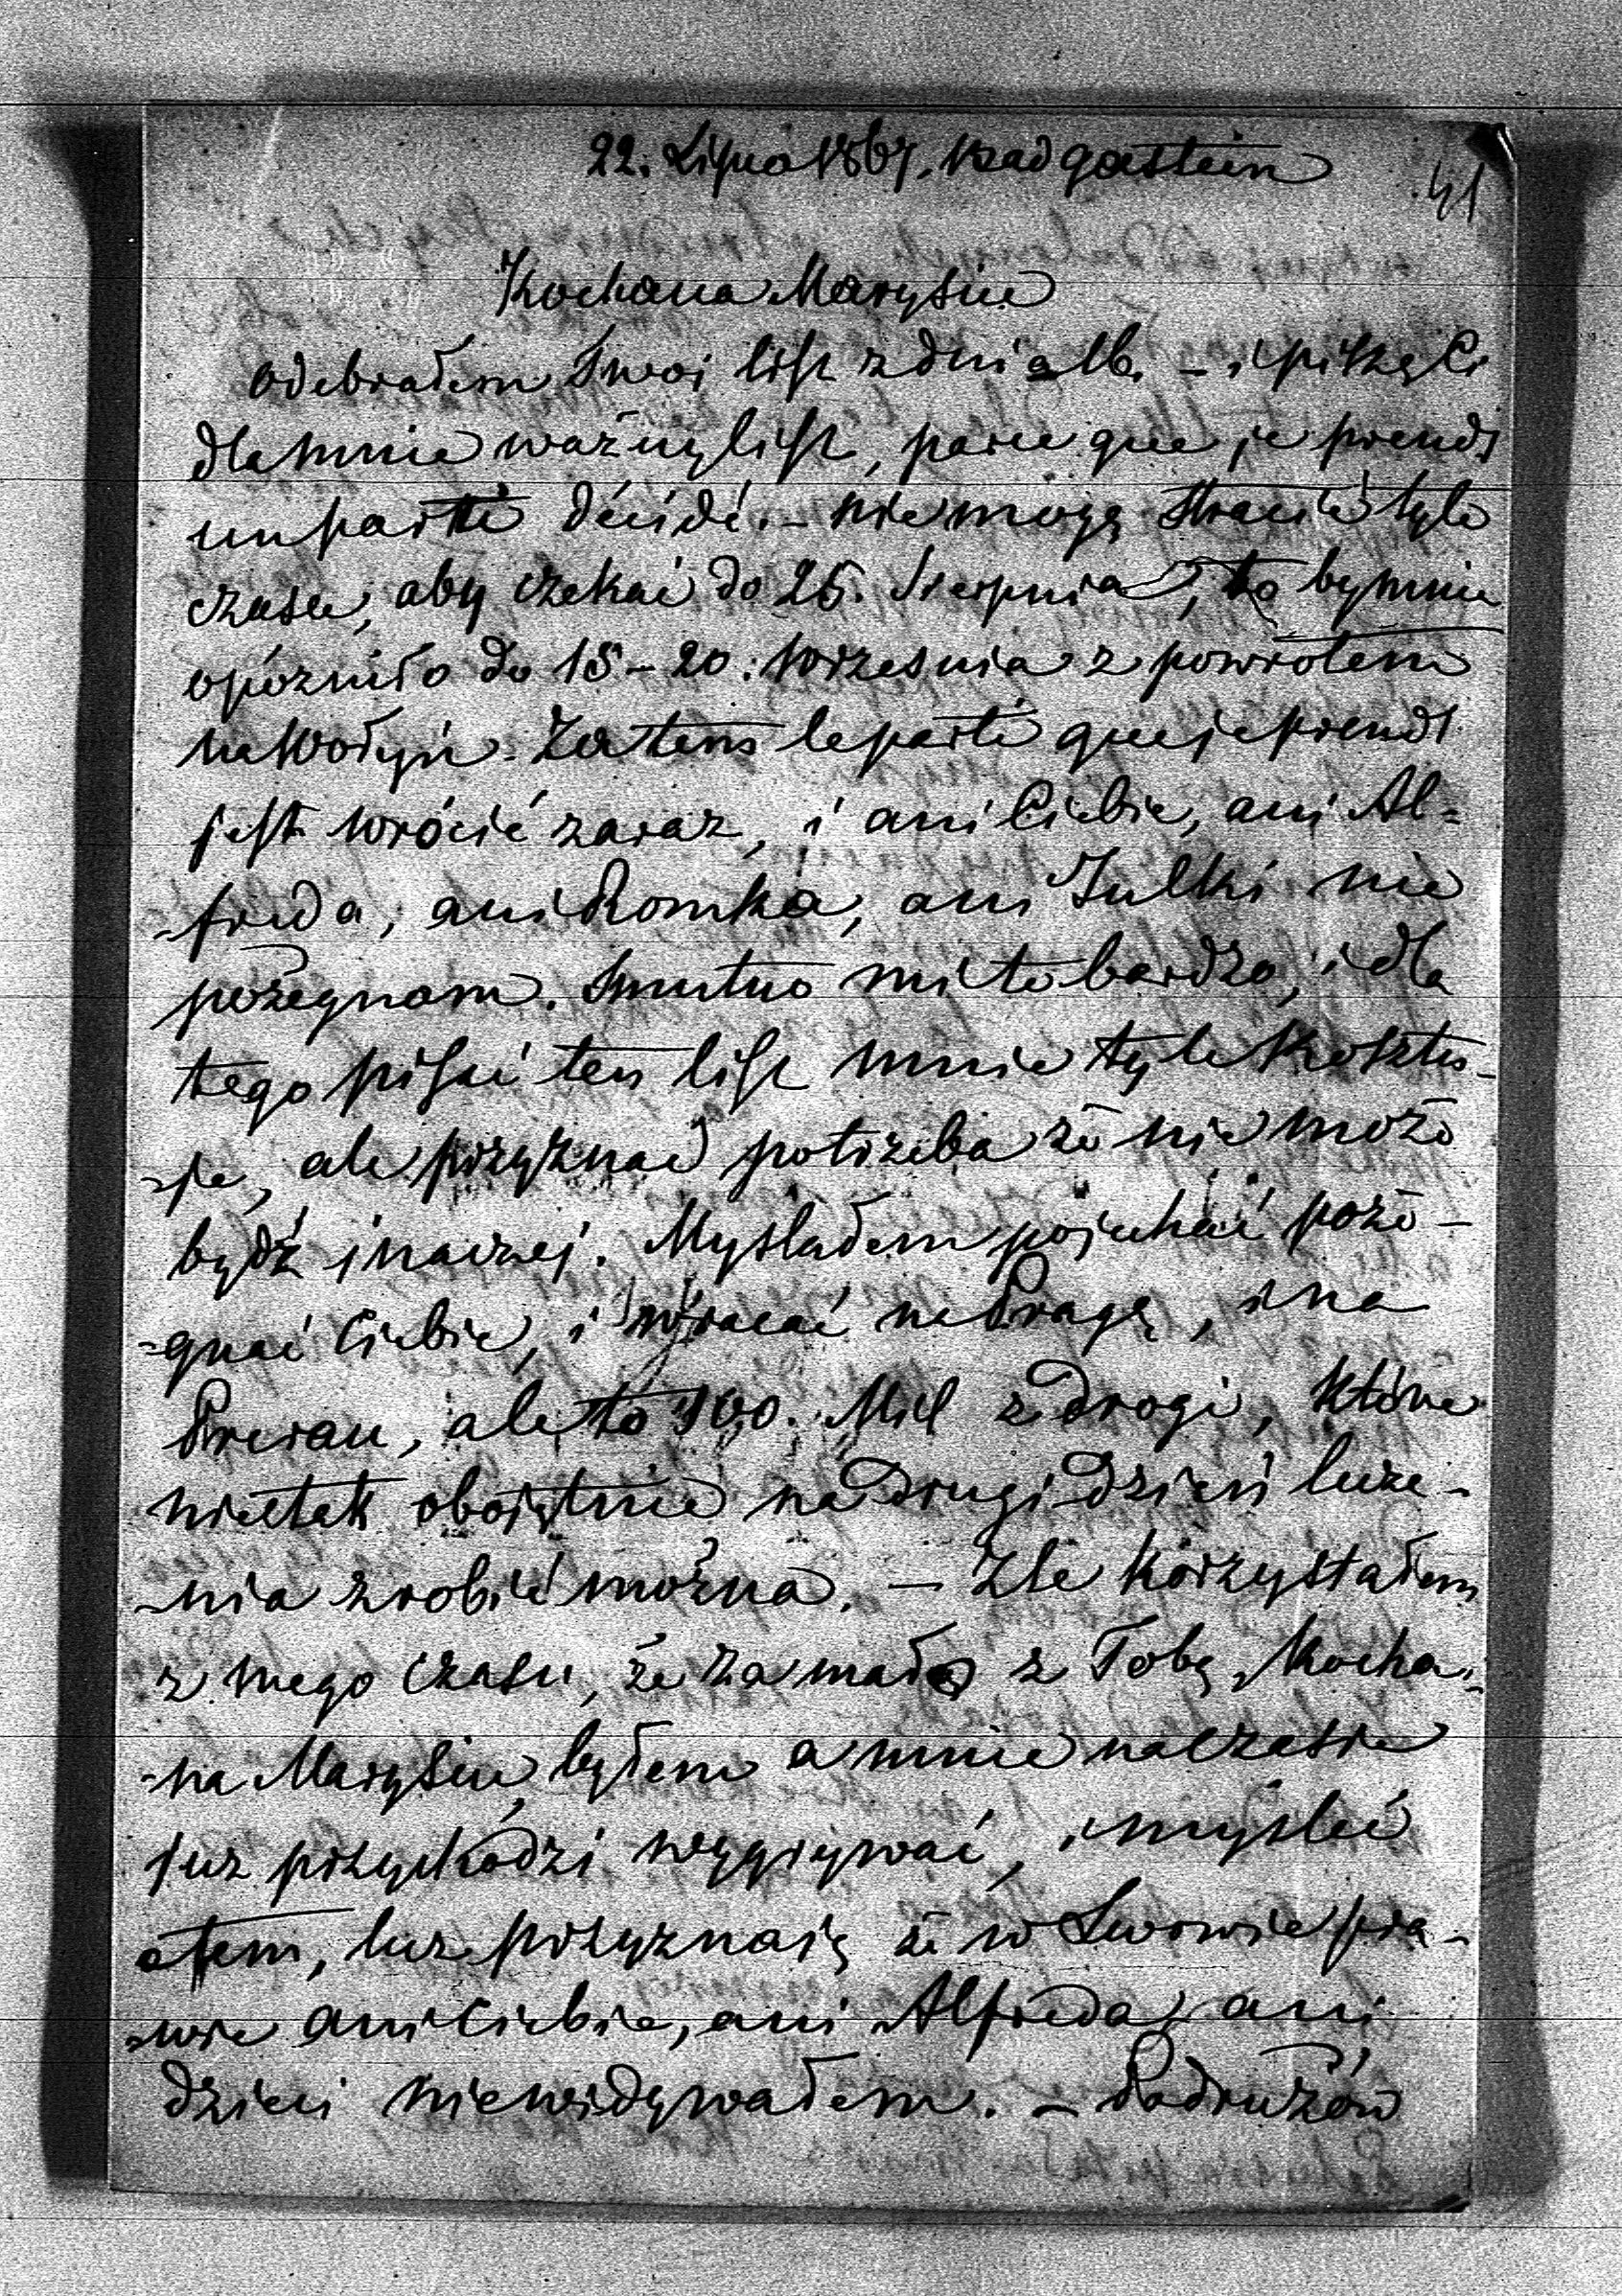 22. Lipca 1867. Bad gastein
41
Kochana Marysiu
odebrałem Twoi list z dnia 16. – i piszę Ci
dla mnie ważny list, parce que je prends
un parti décidé. – nie mogę stracić tyle
czasu, aby czekać do 25. Sierpnia, to by mnie
opóźniło do 15 – 20. Września z powrotem
na Wołyń. Zatem le parti que je prends
jest wrócić zaraz, i ani Ciebie, ani Al=
-freda, ani Romka, ani Julki nie
pożegnam. Smutno mi to bardzo, i dla
tego pisać ten list mnie tyle kosztu-
-je, ale przyznać potrzeba że nie może
bydź inaczej. Myslałem pojechać poże-
-gnać Ciebie, i wracać na Pragę, i na
Prerau, ale to 100. Mil z drogi, które
nie tak obojętnie na drugi dzień lecze-
-nia zrobić można. – Źle korzystałem
z mego czasu, że za mało z Tobą, Kocha-
-na Marysiu, byłem a mnie na czasie
juz przychodzi wygrywać, i myśleć
otem, lecz przyznaię że w Lwowie pra-
-wie ani Ciebie, ani Alfreda, ani
dzieci niewidywałem. – Podróżów